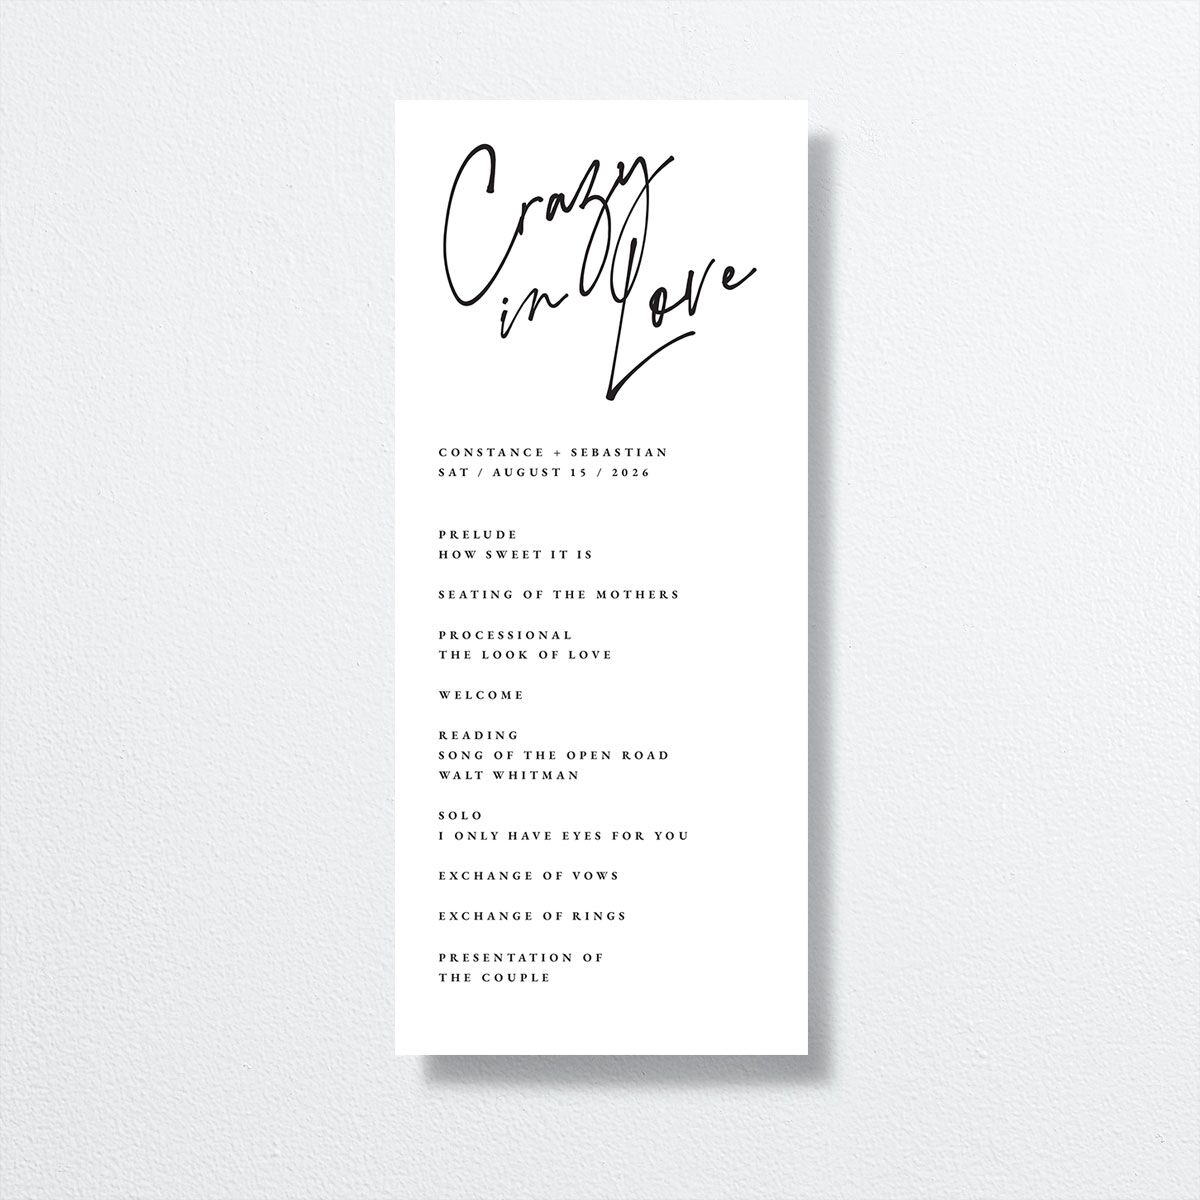 Crazy
in Love
CONSTANCE + SEBASTIAN
SAT / AUGUST 15 / 2026
PRELUDE
HOW SWEET IT IS
SEATING OF THE MOTHERS
PROCESSIONAL
THE LOOK OF LOVE
WELCOME
READING
SONG OF THE OPEN ROAD
WALT WHITMAN
SOLO
I ONLY HAVE EYES FOR YOU
EXCHANGE OF VOWS
EXCHANGE OF RINGS
PRESENTATION OF
THE COUPLE